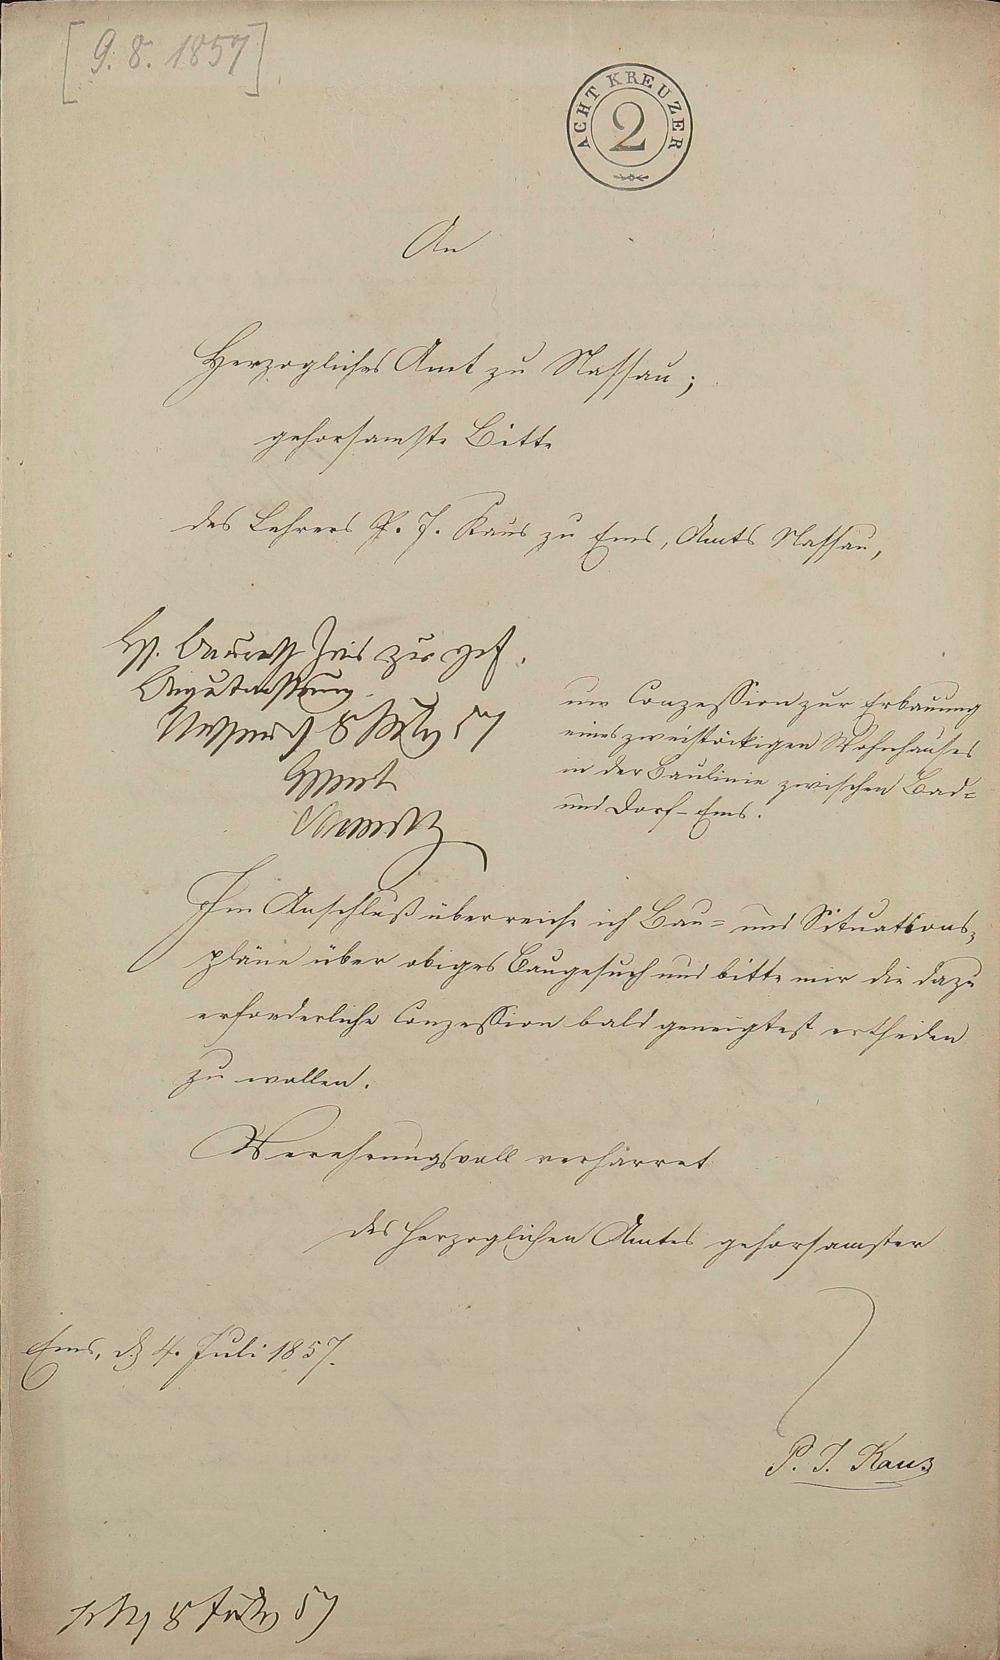 [9.8.1857]
ACHT KREUZER
2
An
Herzogliches Amt zu Nassau;
gehorsamste Bitte
des Lehrers P. J. Kaus zu Ems, Amts Nassau,
zur gef.
Begutachtung.
Nassau 8 July 57
Amt
um Conzession zur Erbauung
eines zweistöckigen Wohnhauses
in der Baulinie zwischen Bad-
und Dorf-Ems.
Im Anschluß überreiche ich Bau- und Situations-
pläne über obiges Baugesuch und bitte mir die dazu
erforderliche Conzession bald geneigtest ertheilen
zu wollen.
Verehrungsvoll verharret
des Herzoglichen Amtes gehorsamster
Ems, d. 4. Juli 1857.
P. J. Kaus
8 July 57